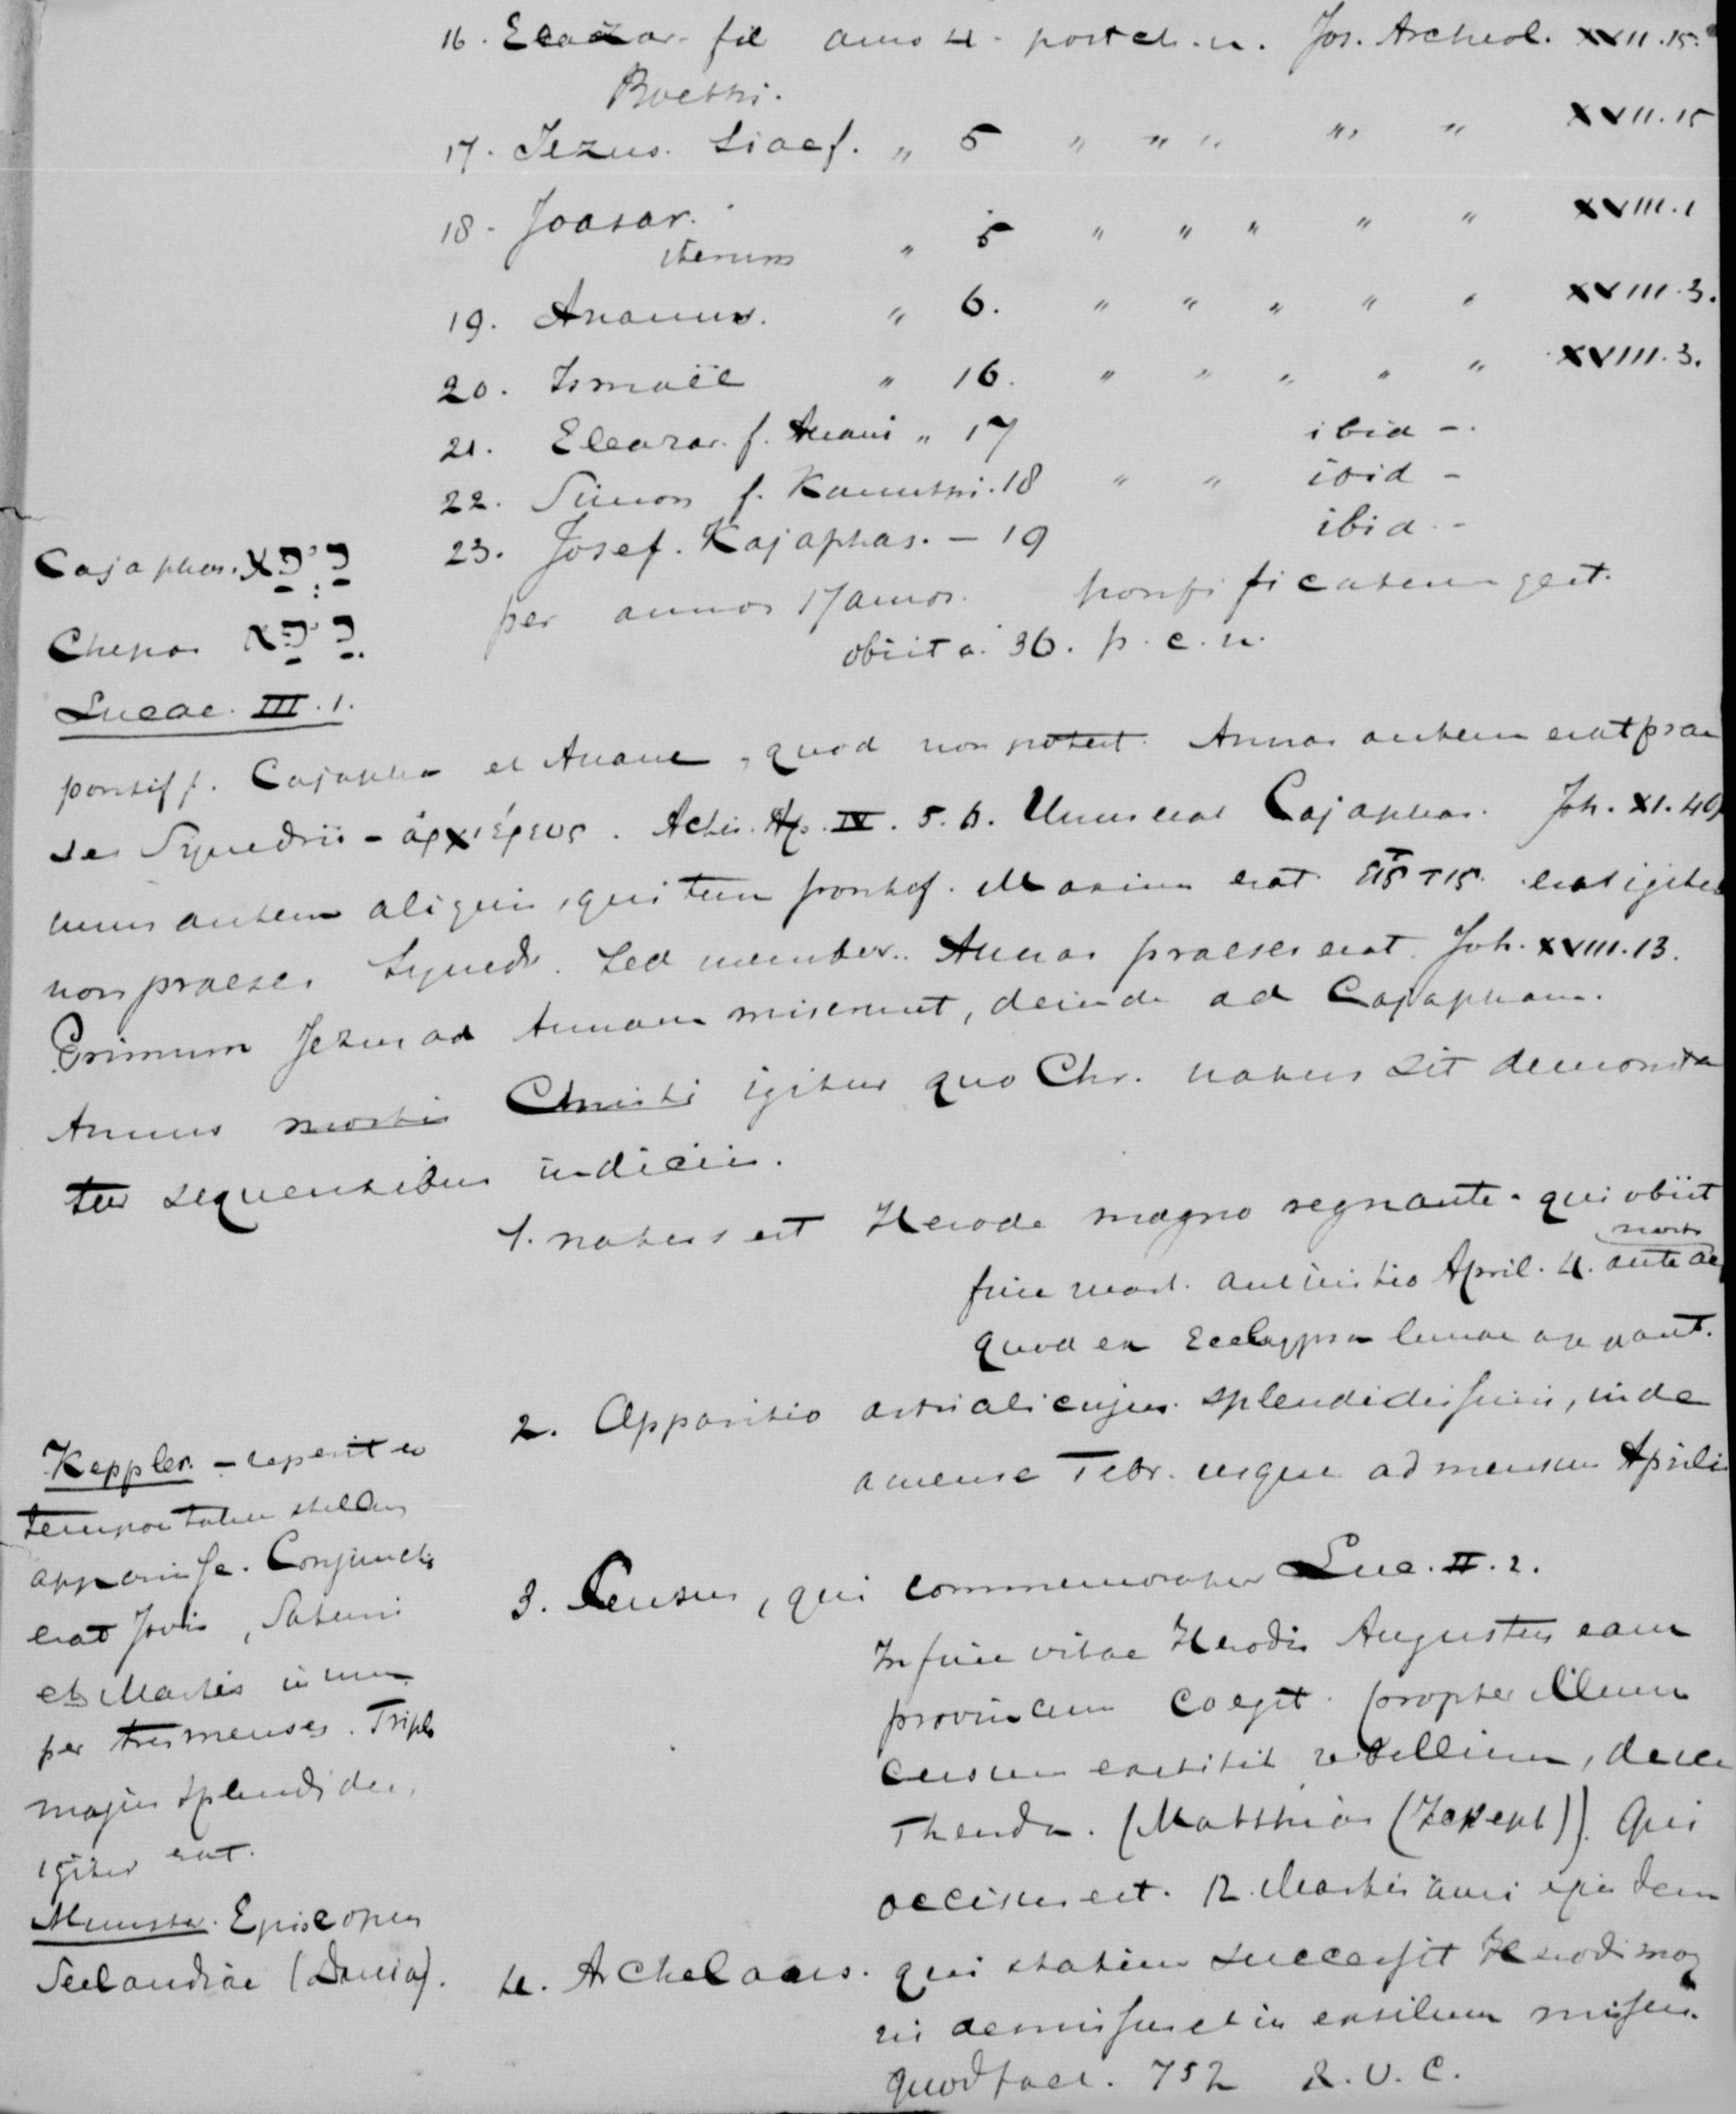 16. Eleazar. fil anno 4 - post ch. n. Jos. Archeol. XVII.15.
Boethi.
17. Jezus. Siaef. „ 5 „ „ „ „ „ XVII.15
18. Joasar. „ 5 „ „ „ „ „ XVIII.1
iterum
19. Ananus. „ 6. „ „ „ „ „ XVIII.3.
20. Ismaël „ 16. „ „ „ „ „ XVIII.3.
21. Eleazar. f. Anani „ 17 ibid -.
22. Simon f. Kamithi. 18 „ „ ibid -
23. Josef. Kajaphas. - 19 ibid. -
per annos 17 annos. pontificatum gest.
obiit a. 36. p. c. n.
Cajaphas.
Chepas
Lucae. III. 1.
pontiff. Cajapha et Anane, quod non potest. Annas autem erat prae
ses Synedrii - ἀρχιέρευς. Actis. Ap. IV. 5. 6. Unus erat Cajaphas. Joh. XI. 49
unus autem aliquis, qui tum pontif. Maxim erat. erat igitur
non praeses Synedr. sed member. Annas praeses erat. Joh. XVIII. 13.
Primum Jezus ad Annam miserunt, deinde ad Cajapham.
Annus mortis Christi igitur quo Chr. natus sit demonstra
tur sequentibus indiciis.
1. natus est Herode magno regnante - qui obiit
fine mart. aut initio April. 4. ante ae
quod ex Ecclypsa lunae
2. Apparitio astri alicujus splendidissimi, inde
a mense Febr. usque ad mensem Aprilis
Keppler - reperit eo
tempore talem stellam
apparuisse. Conjunctis
erat Jovis, Saturni
et Martis in unum
per tres menses. Tripl
majus splendidu.
igitur erat.
Munster. Episcopus
Seelandiae (Dania).
3. Census, qui commemoratur Luc. II. 2.
In fine vitae Herodis Augustus eam
provinciam coegit. propter illum
censum extitit rebellium, duce
Theuda. (Matthias (Joseph)). Qui
occisus est. 12. Martis anni ejusdem
4. Archelaus. qui statim successit Herodi mag
ni demissus et in exsilium missus.
quod fact. 752 R. U. C.